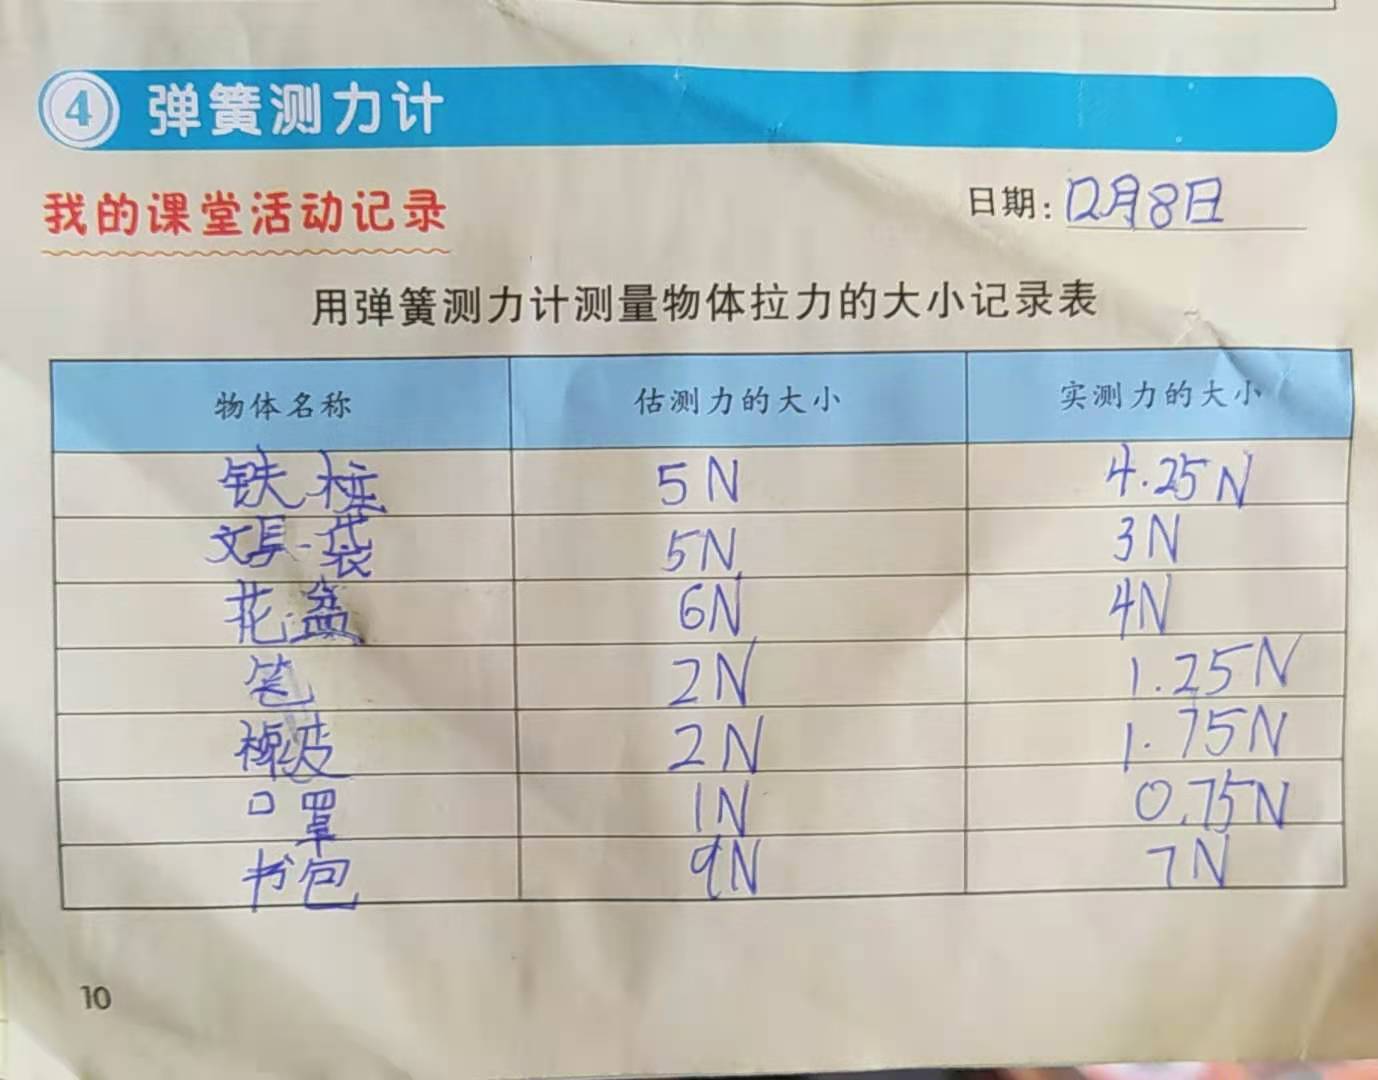 4 弹簧测力计
我的课堂活动记录 日期: 12月8日
用弹簧测力计测量物体拉力的大小记录表
物体名称 估测力的大小 实测力的大小
铁桩 5N 4.25N
文具袋 5N 3N
花盆 6N 4N
笔 2N 1.25N
橡皮 2N 1.75N
口罩 1N 0.75N
书包 9N 7N
10